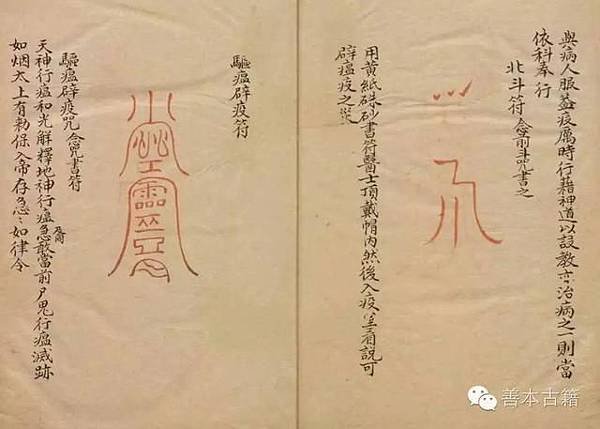 與病人服蓋疫厲時行藉神道以設教亦治病之一則當
依科奉行
北斗符 念前斗咒書之
用黃紙硃砂書符醫士頂戴帽內然後入疫看說可
辟瘟疫之
驅瘟辟疫符
驅瘟辟疫咒 念咒書符
天神行瘟和光解釋地神行瘟急敢當前尸鬼行瘟滅跡
如烟太上有勅保帝存急〻如律令
善本古籍